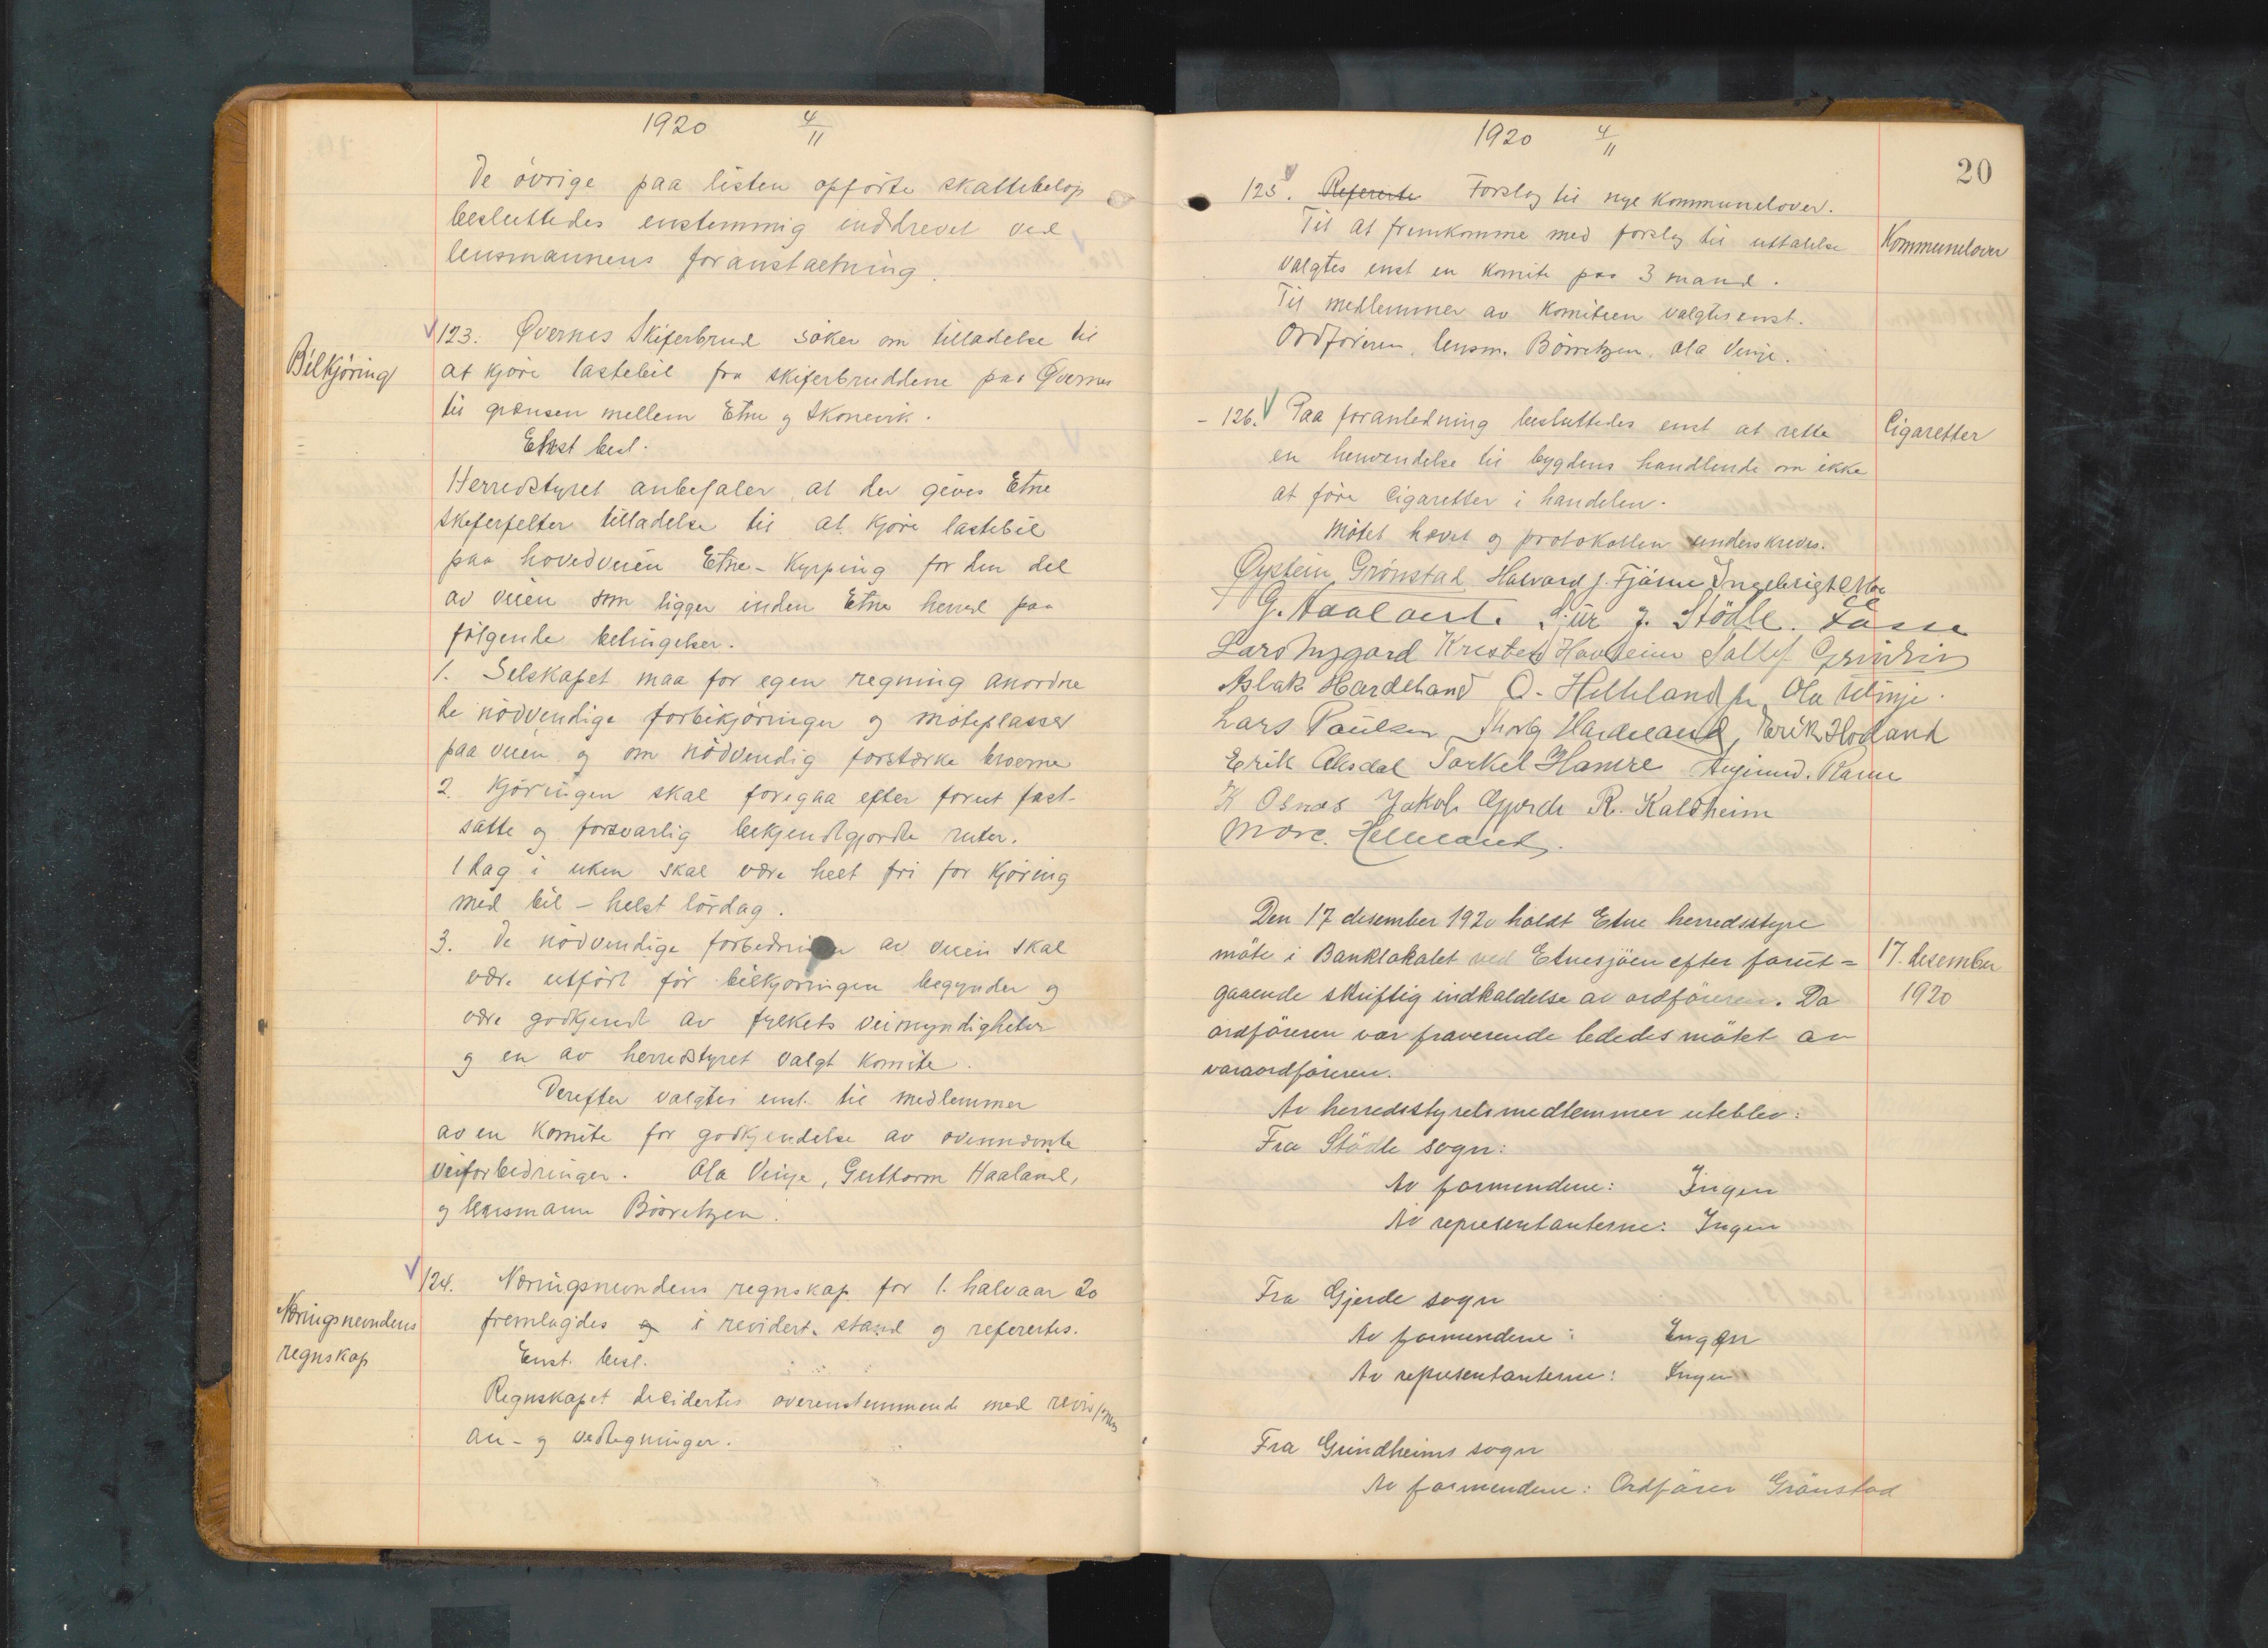 1920 4/11
De övrige paa listen opförte skattebelöp
besluttedes enstemmig inddrevet ved
lensmannens foranstaltning.
Bilkjöring
123. Øvernes Skiferbrud söker om tilladelse til
at kjöre lastebil fra skiferbruddene paa Øvernes
til grænsen mellem Etne og Skonevik.
Enst besl.
Herredstyret anbefaler at der gives Etne
skiferfelter tilladelse til at kjöre lastebil
paa hovedveien Etne - Kyrping for den del
av veien som ligger inden Etne herred paa
fölgende betingelser.
1. Selskapet maa for egen regning anordne
de nödvendige forbikjöringer og möteplasser
paa veien og om nödvendig forstærke broerne
2. Kjöringen skal foregaa efter forut fast-
satte og forsvarlig bekjendtgjorte ruter.
1 dag i uken skal være helt fri for kjöring
med bil - helst lördag.
3. De nödvendige forbedringer av veien skal
være utfört för bilkjöringen begynder og
være godkjendt av fylkets veimyndigheter
og en av herredstyret valgt komite.
Derefter valgtes enst. til medlemmer
av en komite for godkjendelse av ovennævnte
veiforbedringer. Ola Vinje, Guttorm Haaland,
og lensmann Börretzen.
Næringsnevndens
regnskap
124. Næringsnevndens regnskap for 1. halvaar 20
fremlagdes og i revidert stand og referertes.
Enst. besl.
Regnskapet decidertes overenstemmende med revisjonens
an- og vedtegninger.
1920 4/11
20
125. Referente Forslag til nye kommunelover.
Kommunelover
Til at fremkomme med forslag til uttalelse
valgtes enst en komite paa 3 mand.
Til medlemmer av komiteen valgtes enst.
Ordföreren, lensm. Börretzen, Ola Vinje.
- 126. Paa foranledning besluttedes enst at rette
Cigaretter
en henvendelse til bygdens handlende om ikke
at före Cigaretter i handelen.
Mötet hævet og protokollen underskreves.
Øystein Grönstad Halvard J. Fjösne Ingebrigt
G. Haaland. Sjur J. Stödle.
Lars Nygard Kristen Havreim
Aslak Hardeland O. Helleland Ola Vinje.
Lars Paulsen Thorb Hardeland, Erik Hovland
Erik Aksdal Torkel Hamre
K Osnes Jakob Gjerde R. Kaldheim
Helleland.
Den 17 desember 1920 holdt Etne herredsstyre
möte i Banklokalet ved Etnesjöen efter forut=
17. desember
1920
gaaende skriftig indkaldelse av ordföreren. Da
ordföreren var fraverende lededes mötet av
varaordföreren.
Av herredsstyrets medlemmer uteblev:
Fra Stödle sogn:
Av formendene: Ingen
Av representanterne: Ingen
Fra Gjerde sogn
Av formendene: Ingen
Av representanterne: Ingen
Fra Grindheims sogn
Av formendene: Ordförer Grönstad